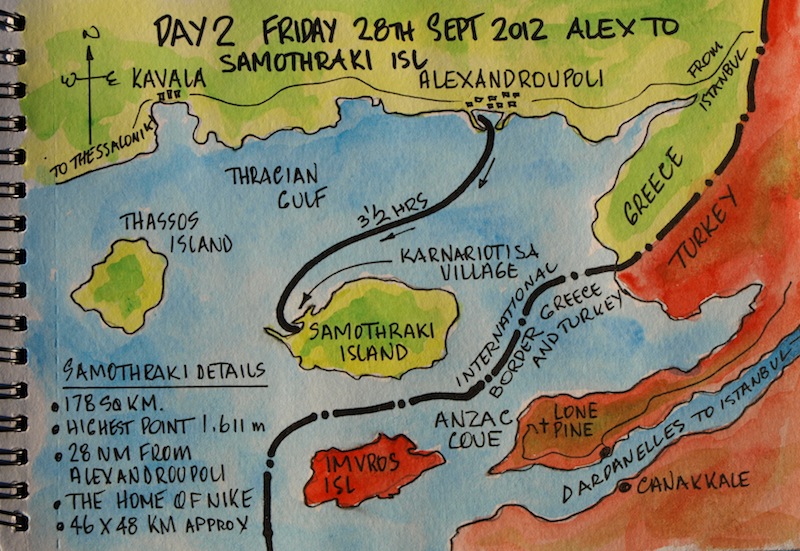 DAY 2 FRIDAY 28TH SEPT 2012 ALEX TO
SAMOTHRAKI ISL
N
W E
KAVALA
ALEXANDROUPOLI
FROM
ISTANBUL
TO THESSALONIKI
THRACIAN
GULF
GREECE
TURKEY
THASSOS
ISLAND
3 1/2 HRS
KARNARIOTISA
VILLAGE
SAMOTHRAKI
ISLAND
INTERNATIONAL
BORDER GREECE
AND TURKEY
SAMOTHRAKI DETAILS
• 178 SQ KM.
• HIGHEST POINT 1.611 m
• 28 NM FROM
ALEXANDROUPOLI
• THE HOME OF NIKE
• 46 X 48 KM APPROX
ANZAC
COVE
LONE
PINE
IMVROS
ISL
DARDANELLES TO ISTANBUL
CANAKKALE